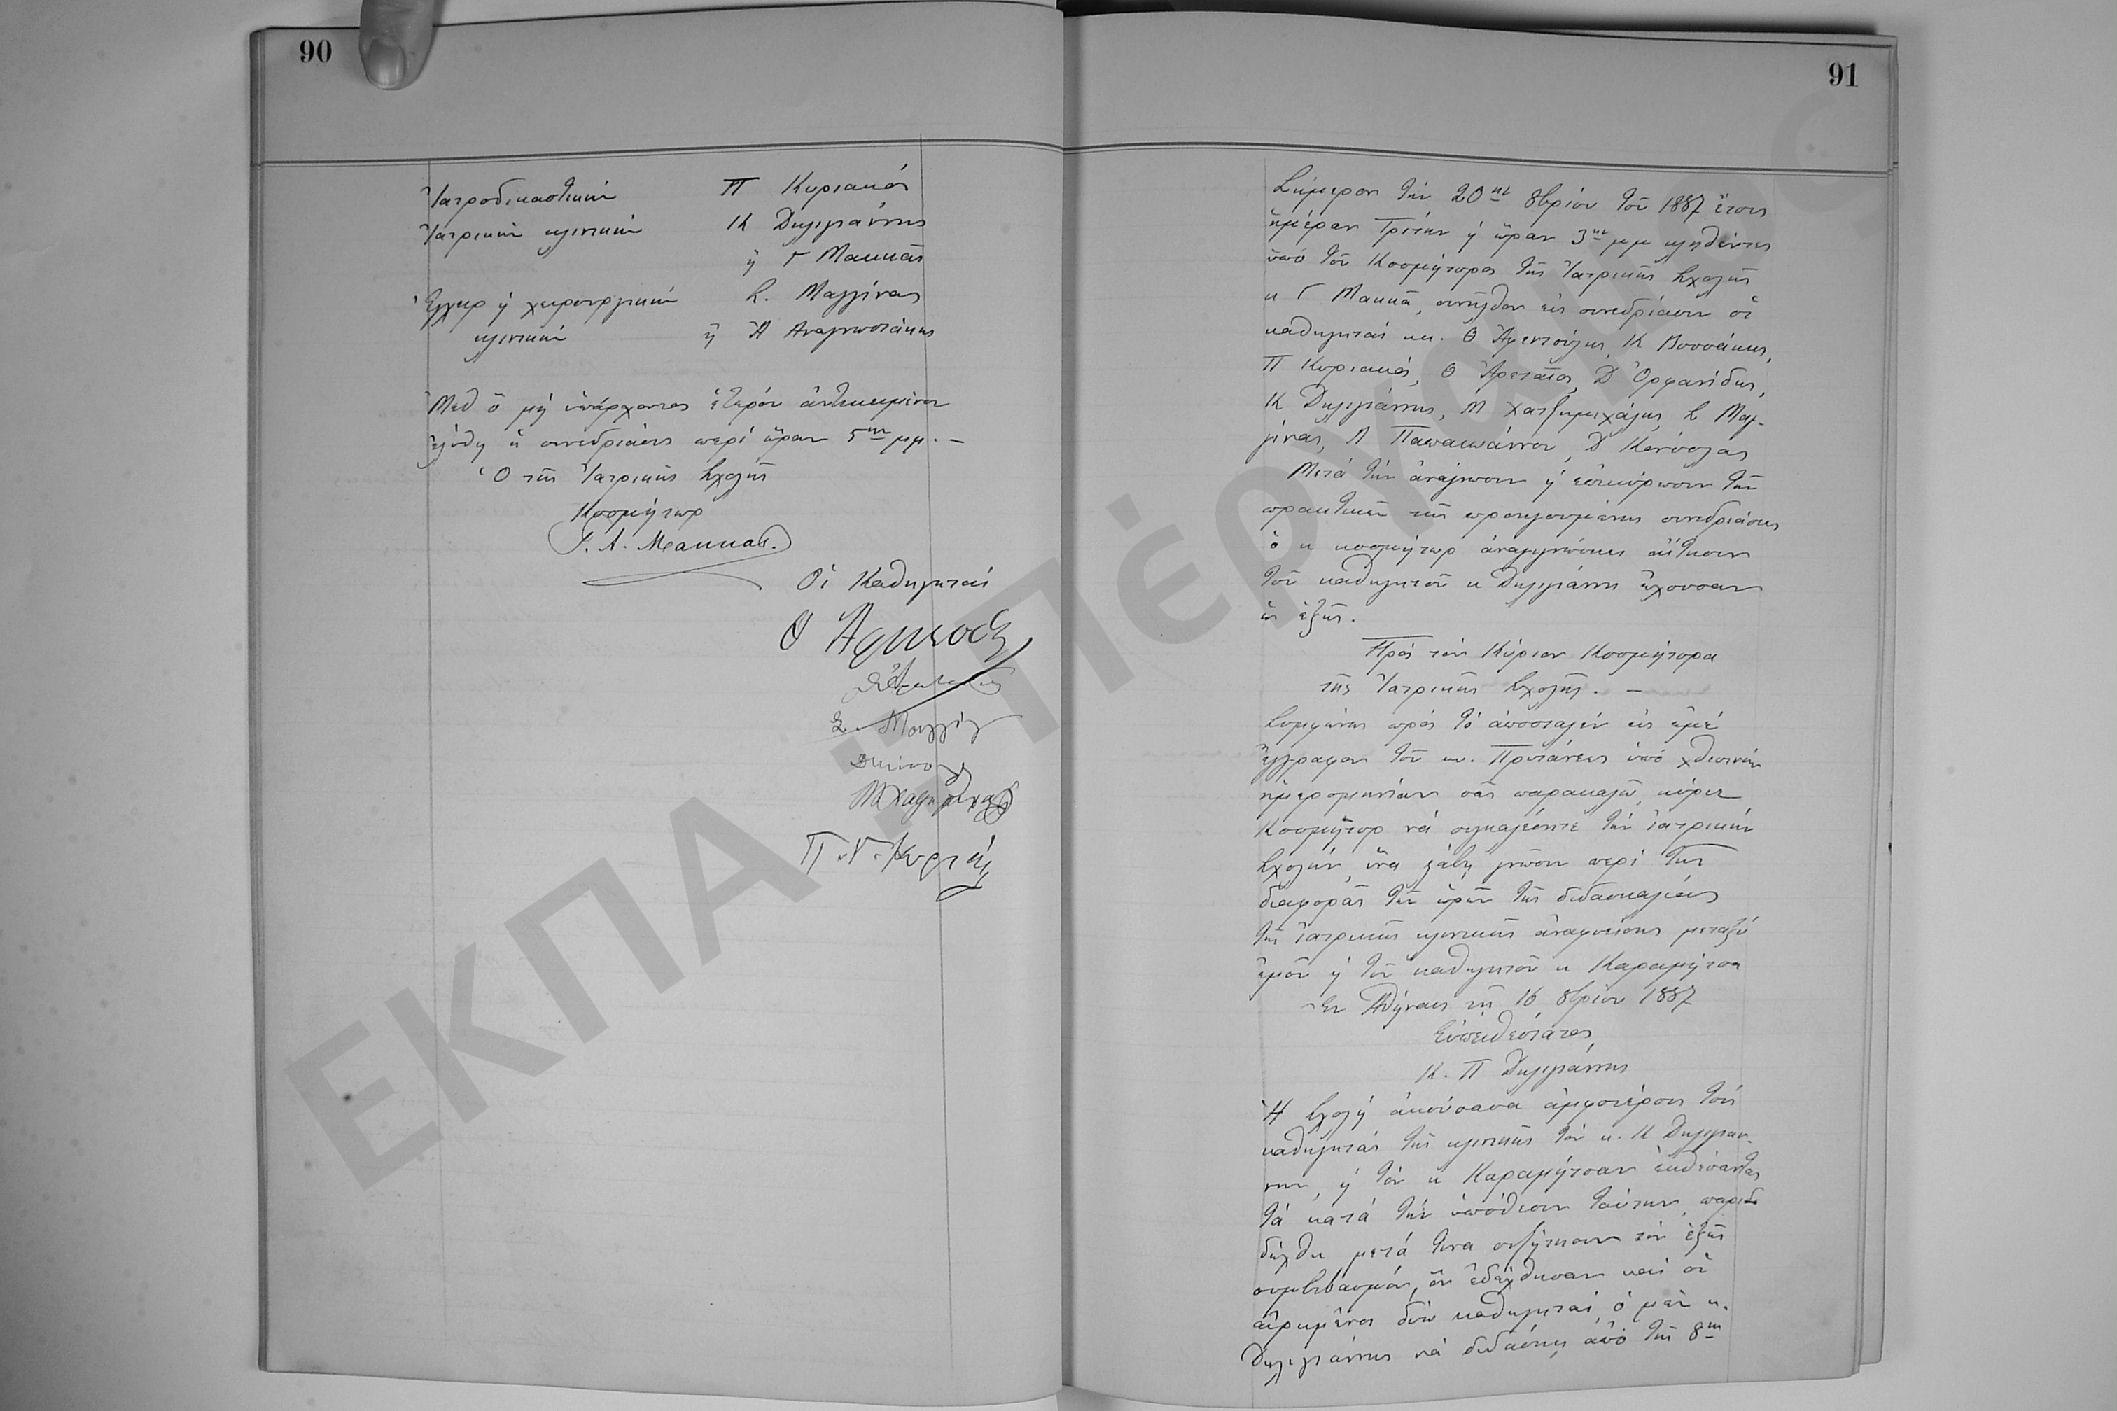 90
Ἰατροδικαστικὴν Π Κυριακός
Ἰατρικὴν κλινικὴν Κ Δηλιγιάννης
ἢ Γ Μακκᾶς
Ἐγχειρ ἢ χειρουργικὴν Σ. Μαγγίνας
κλινικὴν ἢ Ἀ Ἀναγνωστάκης
Μεθ ὃ μὴ ὑπάρχοντος ἑτέρου ἀντικειμένου
ἐλύθη ἡ συνεδρίασις περὶ ὥραν 5ην μμ. –
Ὁ τῆς Ἰατρικῆς Σχολῆς
Κοσμήτωρ
Γ. Α. Μακκας.
Οἱ Καθηγηταὶ
Σ. Μαγγίν
Π. Γ. Κυριακ
91
Σήμερον τὴν 20ην 8βρίου τοῦ 1887 ἔτους
ἡμέραν Τρίτην ἡ ὥραν 3ην μμ κληθέντες
ὑπὸ τοῦ Κοσμήτορος τῆς Ἰατρικῆς Σχολῆς
κ Γ Μακκᾶ, συνῆλθον εἰς συνεδρίασιν οἱ
καθηγηταὶ κκ. Θ Ἀφεντούλης, Κ Βουσάκης,
Π Κυριακός, Θ Ἀρεταῖος, Δ Ὀρφανίδης,
Κ Δηλιγιάννης, Μ Χατζημιχάλης, Σ Μαγ-
γίνας, Λ Παπαϊωάννου, Δ Κανούσλας
Μετὰ τὴν ἀνάγνωσιν ἡ ἐπικύρωσιν τῶν
πρακτικῶν τῆς προηγουμένης συνεδριάσεως
ὁ κ κοσμήτωρ ἀναγινώσκει αἴτησιν
τοῦ καθηγητοῦ κ Δηλιγιάννη ἔχουσαν
ὡς ἑξῆς.
Πρὸς τὸν Κύριον Κοσμήτορα
τῆς Ἰατρικῆς Σχολῆς. –
Συμφώνως πρὸς τὸ ἀποσταλὲν εἰς ἐμὲ
ἔγγραφον τοῦ κυ. Πρυτάνεως ὑπὸ χθεσινὴν
ἡμερομηνίαν σᾶς παρακαλῶ, κύριε
Κοσμῆτορ νὰ συγκαλέσητε τὴν ἰατρικὴν
Σχολὴν, ἵνα λάβῃ γνῶσιν περὶ τῆς
διαφορᾶς τῶν ὡρῶν τῆς διδασκαλίας
τῆς ἰατρικῆς κλινικῆς ἀναφυείσης μεταξὺ
ἐμοῦ ἡ τοῦ καθηγητοῦ κ Καραμήτσα
Ἐν Ἀθήναις τῇ 16 8βρίου 1887
Εὐπειθέστατος
Κ. Π Δηλιγιάννης
Ἡ Σχολὴ ἀκούσασα ἀμφοτέρους τοὺς
καθηγητὰς τῆς κλινικῆς τὸν κ. Κ Δηλιγιάν-
νην, ἡ τὸν κ Καραμήτσαν ἐκθέσαντας
τὰ κατὰ τὴν ὑπόθεσιν ταύτην, παρεδέ
μετὰ τινα συζήτησιν τὸν ἑξῆς
συμβιβασμόν, ὃν ἐδέχθησαν καὶ οἱ
εἰρημένοι δύο καθηγηταὶ ὁ μὲν κ.
Δηλιγιάννης νὰ διδάσκῃ ἀπὸ τῆς 8ης
ΕΚΠΑ / Πέργαμος